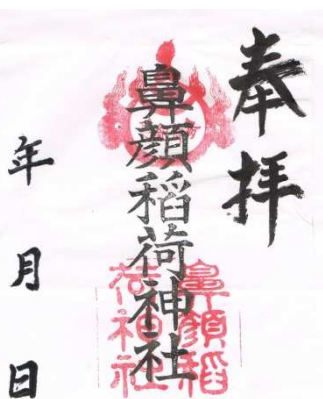 奉拝
鼻顔稲荷神社
鼻顔稲
荷神社
年 月 日